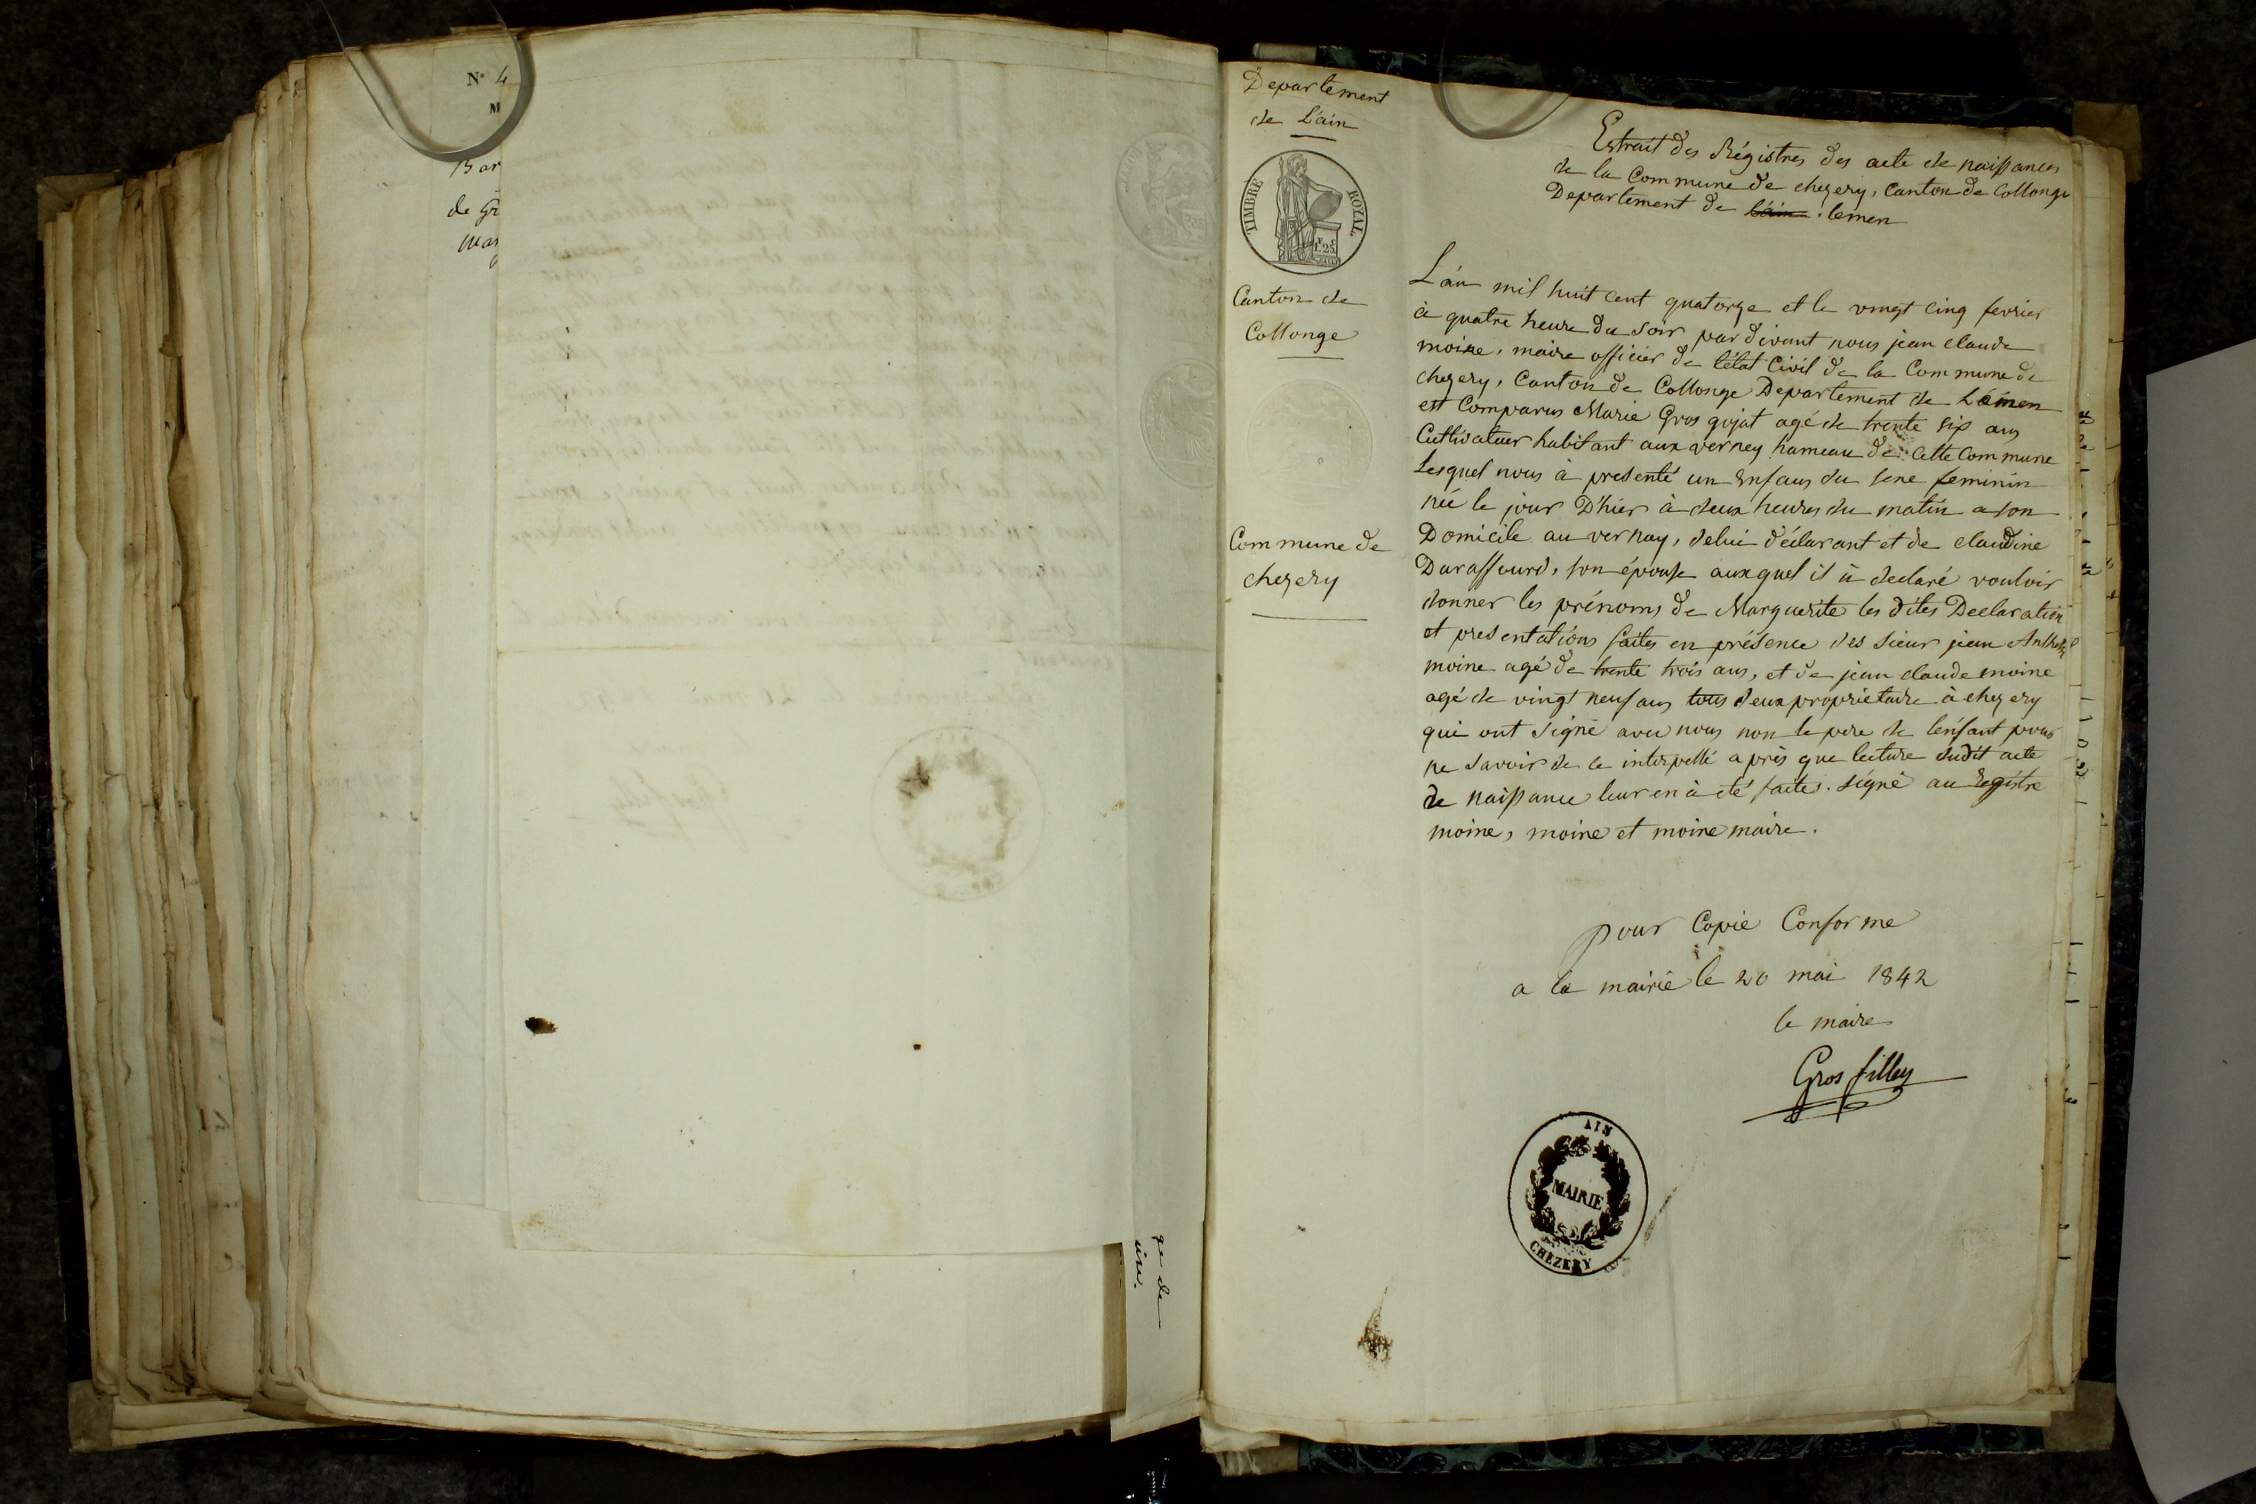 N° 4
M
Bar
de Gr
mar
20 mai
ge de
ire.
Departement
de L'ain
TIMBRE ROYAL
1 F 25 C
Canton de
Collonge
Commune de
chezery
Extrait des Régistres des acte de naissances
de la Commune de chezery, Canton de Collonge
Departement de l'ain lemen
L'an mil huit cent quatorze et le vingt cinq fevrier
à quatre heure du soir par divant nous jean claude
moine, maire officier de l'état Civil de la Commune de
chezery, Canton de Collonge Departement de Lémen
est Comparus Marie Gros gojat agé de trente six ans
Cultivateur habitant aux verney hameau de cette Commune
Lesquel nous à presenté un Enfans du sexe feminin
née le jour D'hier à deux heures du matin a son
Domicile au vernay, delui déclarant et de claudine
Duraffourd, son épouse auxquel il à declaré vouloir
donner les prénoms de Marguerite les dites Declaration
et presentations faites en présence des sieur jean Anthelme
moine agé de trente trois ans, et de jean claude moine
agé de vingt neuf ans tous deux proprietaire à chezery
qui ont signé avec nous non le pere de l'enfant pour
ne savoir de ce interpellé après que lecture dudit acte
de naissance leur en à été faites. signé au Registre
moine, moine et moine maire.
pour Copie Conforme
a la mairie le 20 mai 1842
le maire
Gros filley
AIN
MAIRIE
CHEZERY